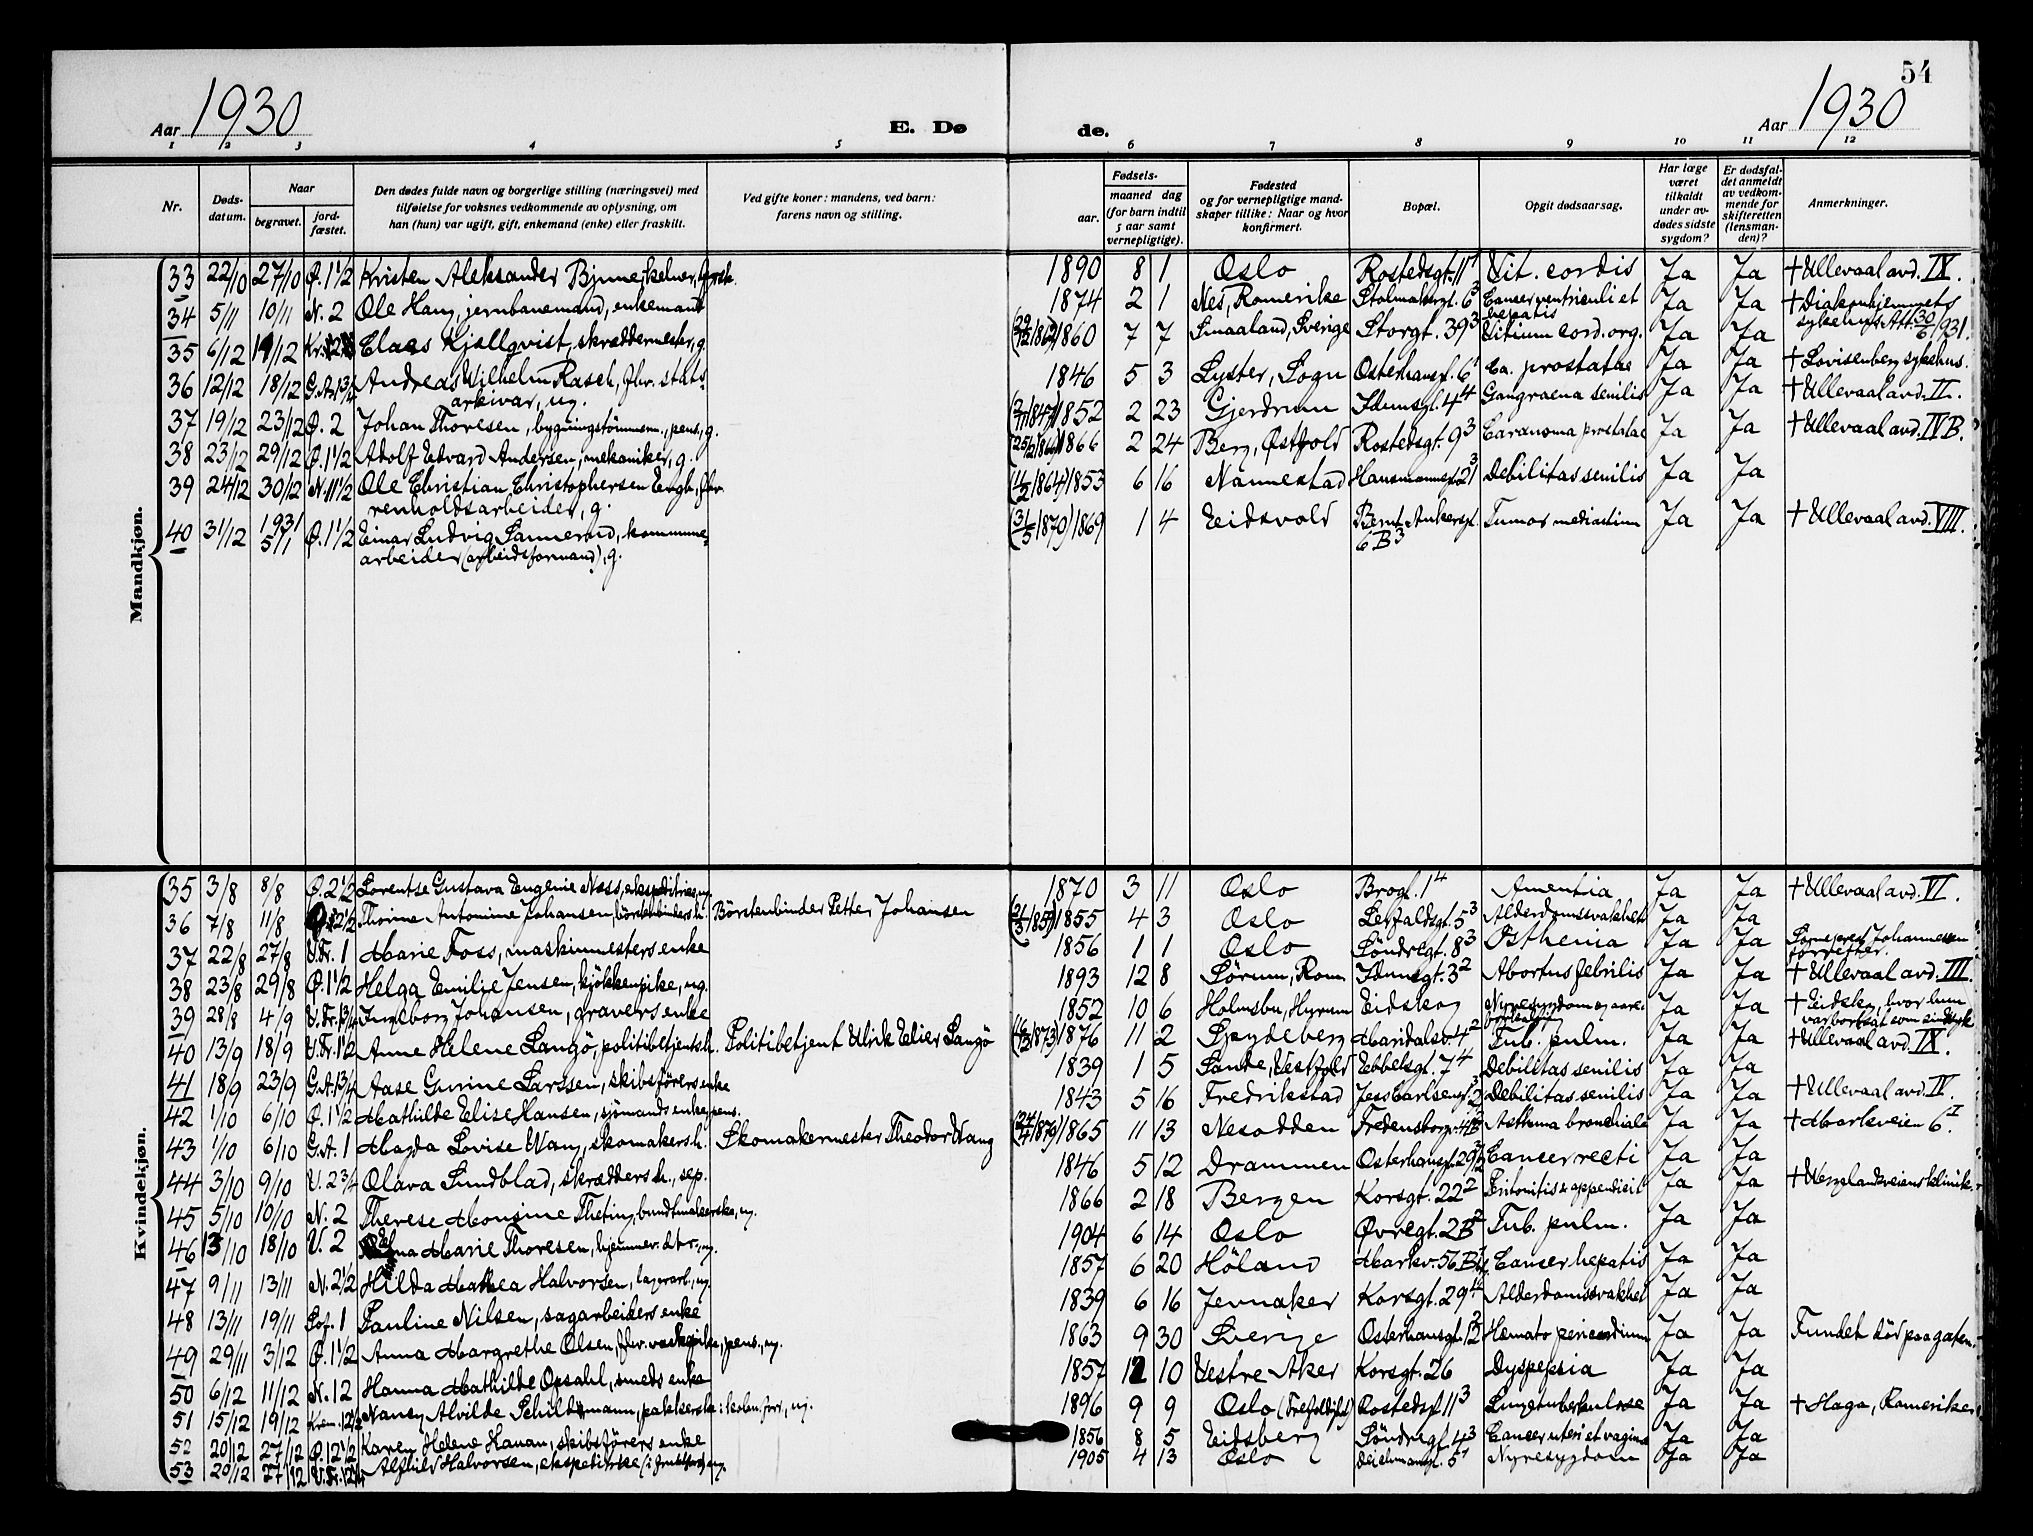 54
Aar 1930 E. Dø de. Aar 1930
1 2 3 4 5 6 7 8 9 10 11 12
Nr.
Døds-
datum.
Naar
begravet.
jord-
fæstet.
Den dødes fulde navn og borgerlige stilling (næringsvei) med
tilføielse for voksnes vedkommende av oplysning, om
han (hun) var ugift, gift, enkemand (enke) eller fraskilt.
Ved gifte koner: mandens, ved barn:
farens navn og stilling.
Fødsels-
aar.
maaned dag
(for barn indtil
5 aar samt
vernepligtige).
Fødested
og for vernepligtige mand-
skaper tillike: Naar og hvor
konfirmert.
Bopæl.
Opgit dødsaarsag.
Har læge
været
tilkaldt
under av-
dødes sidste
sygdom?
Er dødsfal-
det anmeldt
av vedkom-
mende for
skifteretten
(lensman-
den)?
Anmerkninger.
Mandkjøn.
33 22/10 27/10 Ø. 1 1/2 Kristen Aleksander Bjune, kelner, 1890 8 1 Oslo Rostedsgt. 11 Vit. cordis Ja Ja † Ullevaal avd. IX.
34 5/11 10/11 N. 2 Ole Haug, jernbanemand, enkemand 1874 2 1 Nes, Romerike 6³ Cancer ventriculi et Ja Ja † Diakonhjemmets
hepatis sykehus. Att. 30/6 1931.
35 6/12 /12 Claes Kjellqvist, skræddermester, g. 1860 7 7 Smaaland, Sverige Storgt. 39³ Vitium cord. org. Ja Ja
36 12/12 18/12 G.A. 1 3/4 Andreas Wilhelm Rasch, fhv. stats- 1846 5 3 Lyster, Sogn Osterhausgt. 6¹ Ca. prostatae Ja Ja † Lovisenberg sykehus.
arkivar, ug.
37 19/12 23/12 Ø. 2 Johan Thoresen, bygningstømmerm., pens., g. 1852 2 23 Gjerdrum Idunsgt. 4⁴ Gangraena senilis Ja Ja † Ullevaal avd. II.
38 23/12 29/12 Ø. 1 1/2 Adolf Edvard Andersen, mekaniker, g. 1866 2 24 Berg, Østfold Rostedsgt. 9³ prostatae Ja Ja † Ullevaal avd. IVB.
39 24/12 30/12 N. 11 1/2 Ole Christian Christophersen Engh, fhv. (/1864) 1853 6 16 Nannestad Hausmannsgt. 21³ Debilitas senilis Ja Ja
renholdsarbeider, g.
40 31/12 1931 5/1 Ø. 1 1/2 Einar Ludvig Sannerød, kommune- (31/5 1870) 1869 1 4 Eidsvold Bernt Ankersgt. Tumor mediastini Ja Ja † Ullevaal avd. VIII.
arbeider (arbeidsformand), g. 6 B³
Kvindekjøn.
35 3/8 8/8 Ø. 2 1/2 Lorentse Gustava Eugenie Næss, ekspeditrice, ug. 1870 3 11 Oslo Brogt. 1⁴ Amentia Ja Ja † Ullevaal avd. VI.
36 7/8 11/8 Ø. 12 1/2 Thorine Antonine Johansen, børstenbinders h. Børstenbinder Petter Johansen 1855 4 3 Oslo Leirfaldsgt. 5³ Alderdomssvakhet Ja Ja
37 22/8 27/8 V.Fr. 1 Marie Foss, maskinmesters enke 1856 1 1 Oslo Søndregt. 8³ Asthenia Ja Ja Sogneprest Johannessen
forretter.
38 23/8 29/8 Ø. 1 1/2 Helga Emilie Jensen, kjøkkenpike, ug. 1893 12 8 Sørum, Rom. Idunsgt. 3² Abortus febrilis Ja Ja † Ullevaal avd. III.
39 28/8 4/9 V.Fr. 1 3/4 Ingeborg Johansen, gravers enke 1852 10 6 Holmsbu, Hurum Eidskog Nyresygdom og aare- Ja Ja † Eidskog, hvor hun
forkalkn. var bortsat som sindssyk
40 13/9 18/9 V.Fr. 1 1/2 Anne Helene Langö, politibetjents h. Politibetjent Ulrik Elier Langö 1876 11 2 Spydeberg Maridalsv. 4² Tub. pulm. Ja Ja † Ullevaal avd. IX.
41 18/9 23/9 G.A. 1 3/4 Aase Gurine Larssen, skibsførers enke 1839 1 5 Sande, Vestfold Ebbelsgt. 7⁴ Debilitas senilis Ja Ja
42 1/10 6/10 Ø. 1 1/2 Mathilde Elise Hansen, sjömands enke, pens. 1843 5 16 Fredrikstad Jess Carlsensgt. 2 Debilitas senilis Ja Ja † Ullevaal avd. IV.
43 1/10 6/10 G.A. 1 Magda Lovise Wang, skomakers h. Skomakermester Theodor Wang 1865 11 13 Nesodden Fredensborgv. Asthma bronchiale Ja Ja † Markveien 6 I.
44 3/10 9/10 V. 2 3/4 Olava Sundblad, skrædders h., sep. 1846 5 12 Drammen Osterhausgt. 29 Cancer recti Ja Ja
45 5/10 10/10 N. 2 Therese Monsine Theting, bundtmakerske, ug. 1866 2 18 Bergen Korsgt. 22² Peritonitis & appendicit Ja Ja † Wergelandsveiens klinik.
46 13/10 18/10 V. 2 Marie Thoresen, hjemmev. dtr., ug. 1904 6 14 Oslo Øvregt. 2B² Tub. pulm. Ja Ja
47 9/11 13/11 N. 2 1/2 Hilda Mathea Halvorsen, lagerarb., ug. 1857 6 20 Høland Markv. 56 B Cancer hepatis Ja Ja
48 13/11 19/11 Sof. 1 Pauline Nilsen, sagarbeiders enke 1839 6 16 Jevnaker Korsgt. 29⁴ Alderdomssvakhet Ja Ja
49 29/11 3/12 Ø. 1 1/2 Anna Margrethe Olsen, fhv. vaskepike, pens., ug. 1863 9 30 Sverige Osterhausgt. 12 Hæmato pericardium Ja Ja Fundet død paa gaten.
50 6/12 11/12 N. 12 Hanna Mathilde Opsahl, smeds enke 1857 12 10 Vestre Aker Korsgt. 26 Dyspepsia Ja Ja
51 15/12 19/12 Krem. 12 1/2 Nancy Alvilde Schildmann, pakkerske i kolon.forr., ug. 1896 9 9 Oslo (Trefoldigh.) Rostedsgt. 11³ Lungetuberkulose Ja Ja † Haga, Romerike
52 20/12 27/12 Ø. 12 1/2 Karen Helene Hanan, skibsførers enke 1856 8 5 Eidsberg Søndregt. 4³ Cancer uteri et vagina Ja Ja
53 20/12 27/12 V.Fr. 12 Alfhild Halvorsen, ekspeditrise (i fruktforr.), ug. 1905 4 13 Oslo Deichmansgt. 5 Nyresygdom Ja Ja